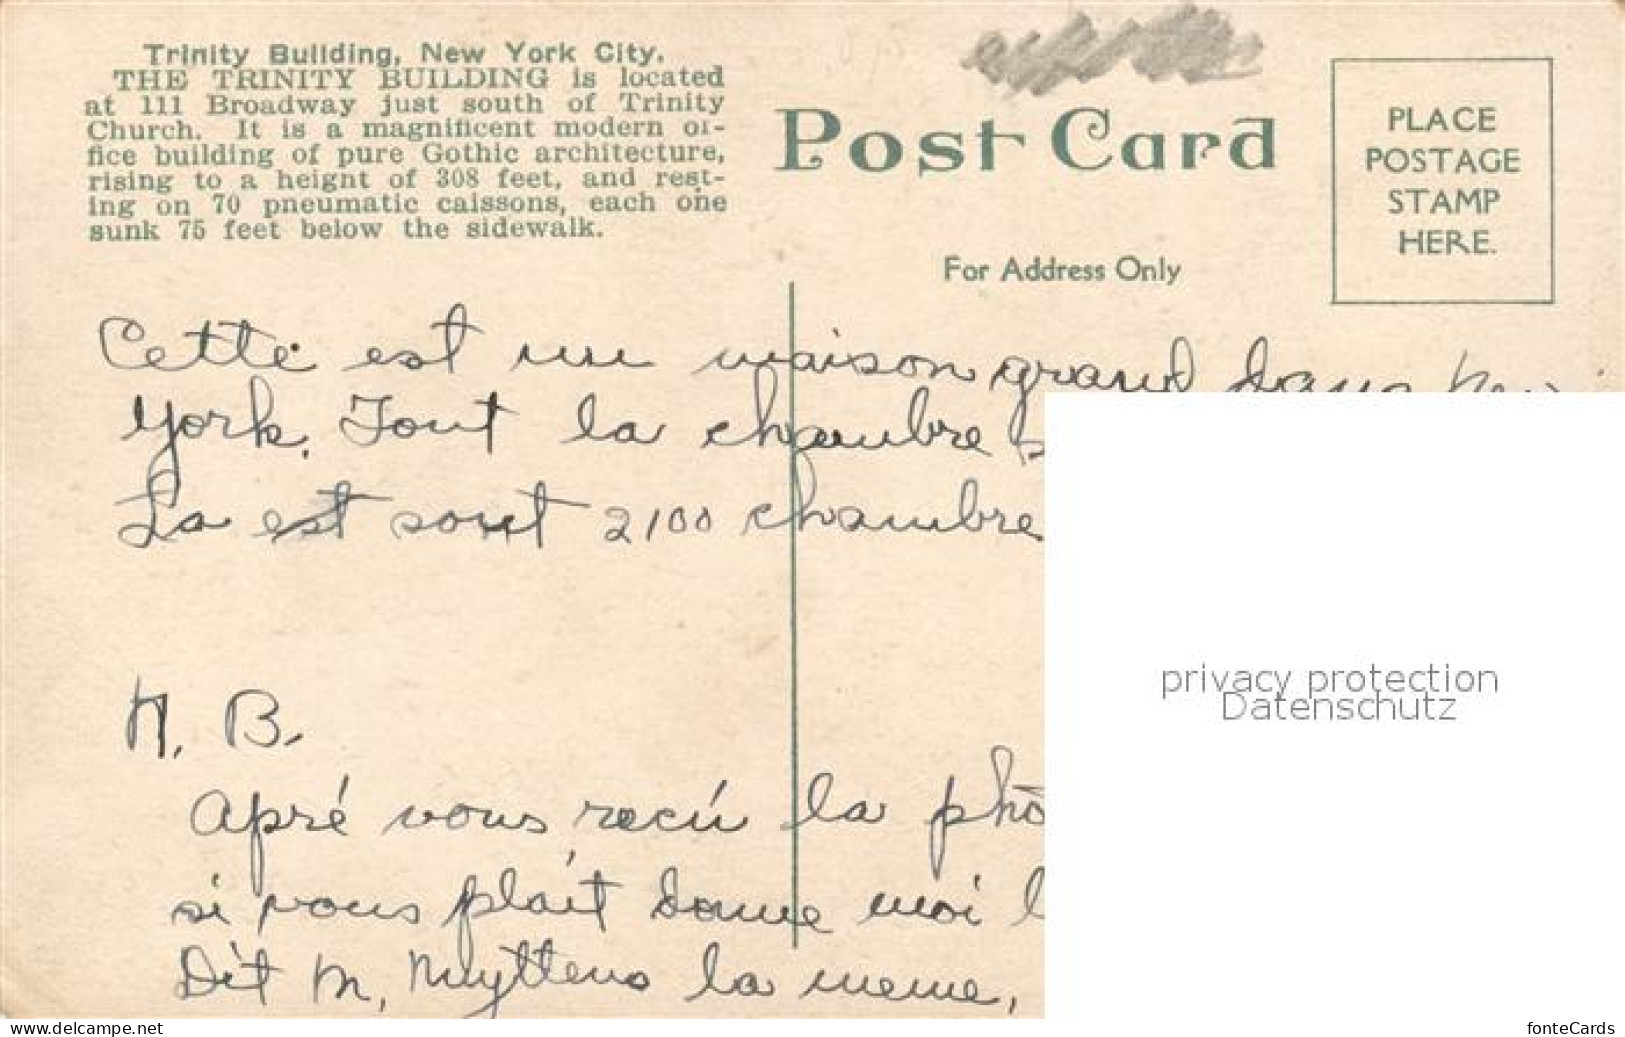 Trinity Building, New York City.
THE TRINITY BUILDING is located
at 111 Broadway just south of Trinity
Church. It is a magnificent modern of-
fice building of pure Gothic architecture,
rising to a height of 308 feet, and rest-
ing on 70 pneumatic caissons, each one
sunk 75 feet below the sidewalk.
Post Card
For Address Only
PLACE
POSTAGE
STAMP
HERE.
Cette est un maison grand dans New
York. Tout la chambre
La est sont 2100 chambre
N. B.
Apré vous recú la pho
si vous plait donne moi l
Dit M. Nuyttens la meme,
privacy protection
Datenschutz
www.delcampe.net
fonteCards